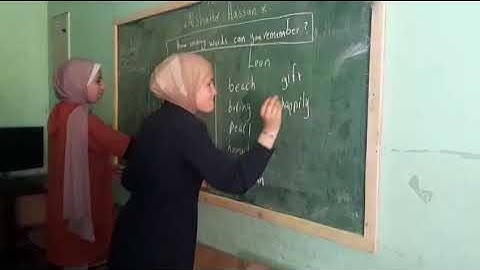 Alshaller Hassan
How many words can you remember?
Leon
beach gift
boring happily
pearl